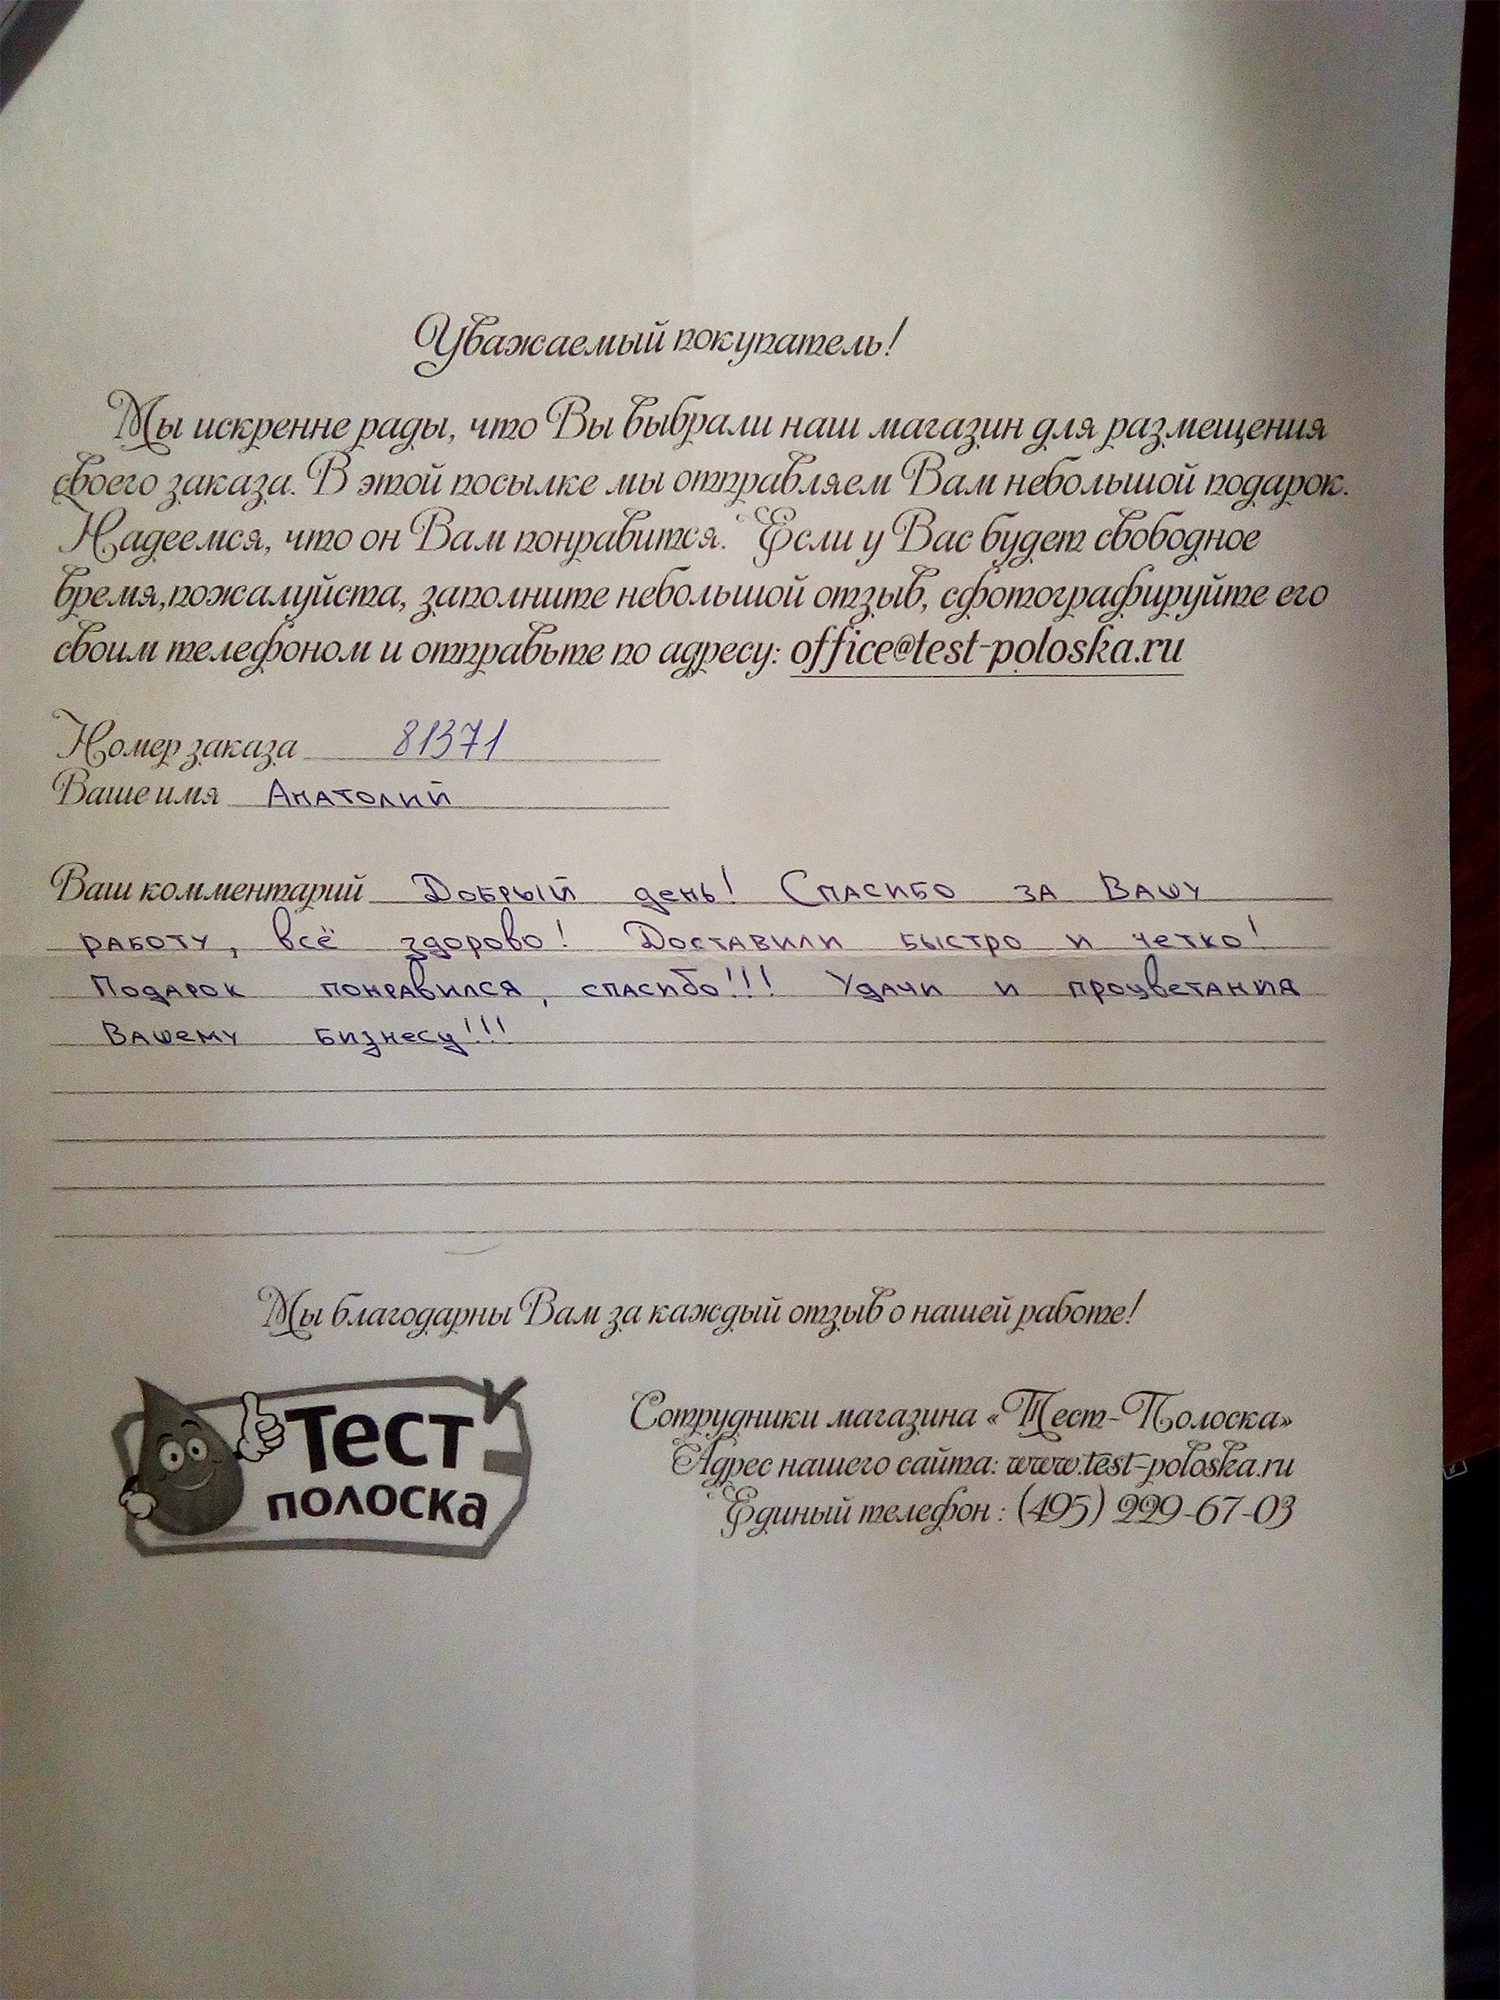 Уважаемый покупатель!
Мы искренне рады, что Вы выбрали наш магазин для размещения
своего заказа. В этой посылке мы отправляем Вам небольшой подарок.
Надеемся, что он Вам понравится. Если у Вас будет свободное
время,пожалуйста, заполните небольшой отзыв, сфотографируйте его
своим телефоном и отправьте по адресу: office@test-poloska.ru
Номер заказа 81371
Ваше имя Анатолий
Ваш комментарий Добрый день! Спасибо за Вашу
работу, всё здорово! Доставили быстро и четко!
Подарок понравился, спасибо!!! Удачи и процветания
Вашему бизнесу!!!
Мы благодарны Вам за каждый отзыв о нашей работе!
Тест
полоска
Сотрудники магазина «Тест-Полоска»
Адрес нашего сайта: www.test-poloska.ru
Единый телефон : (495) 229-67-03